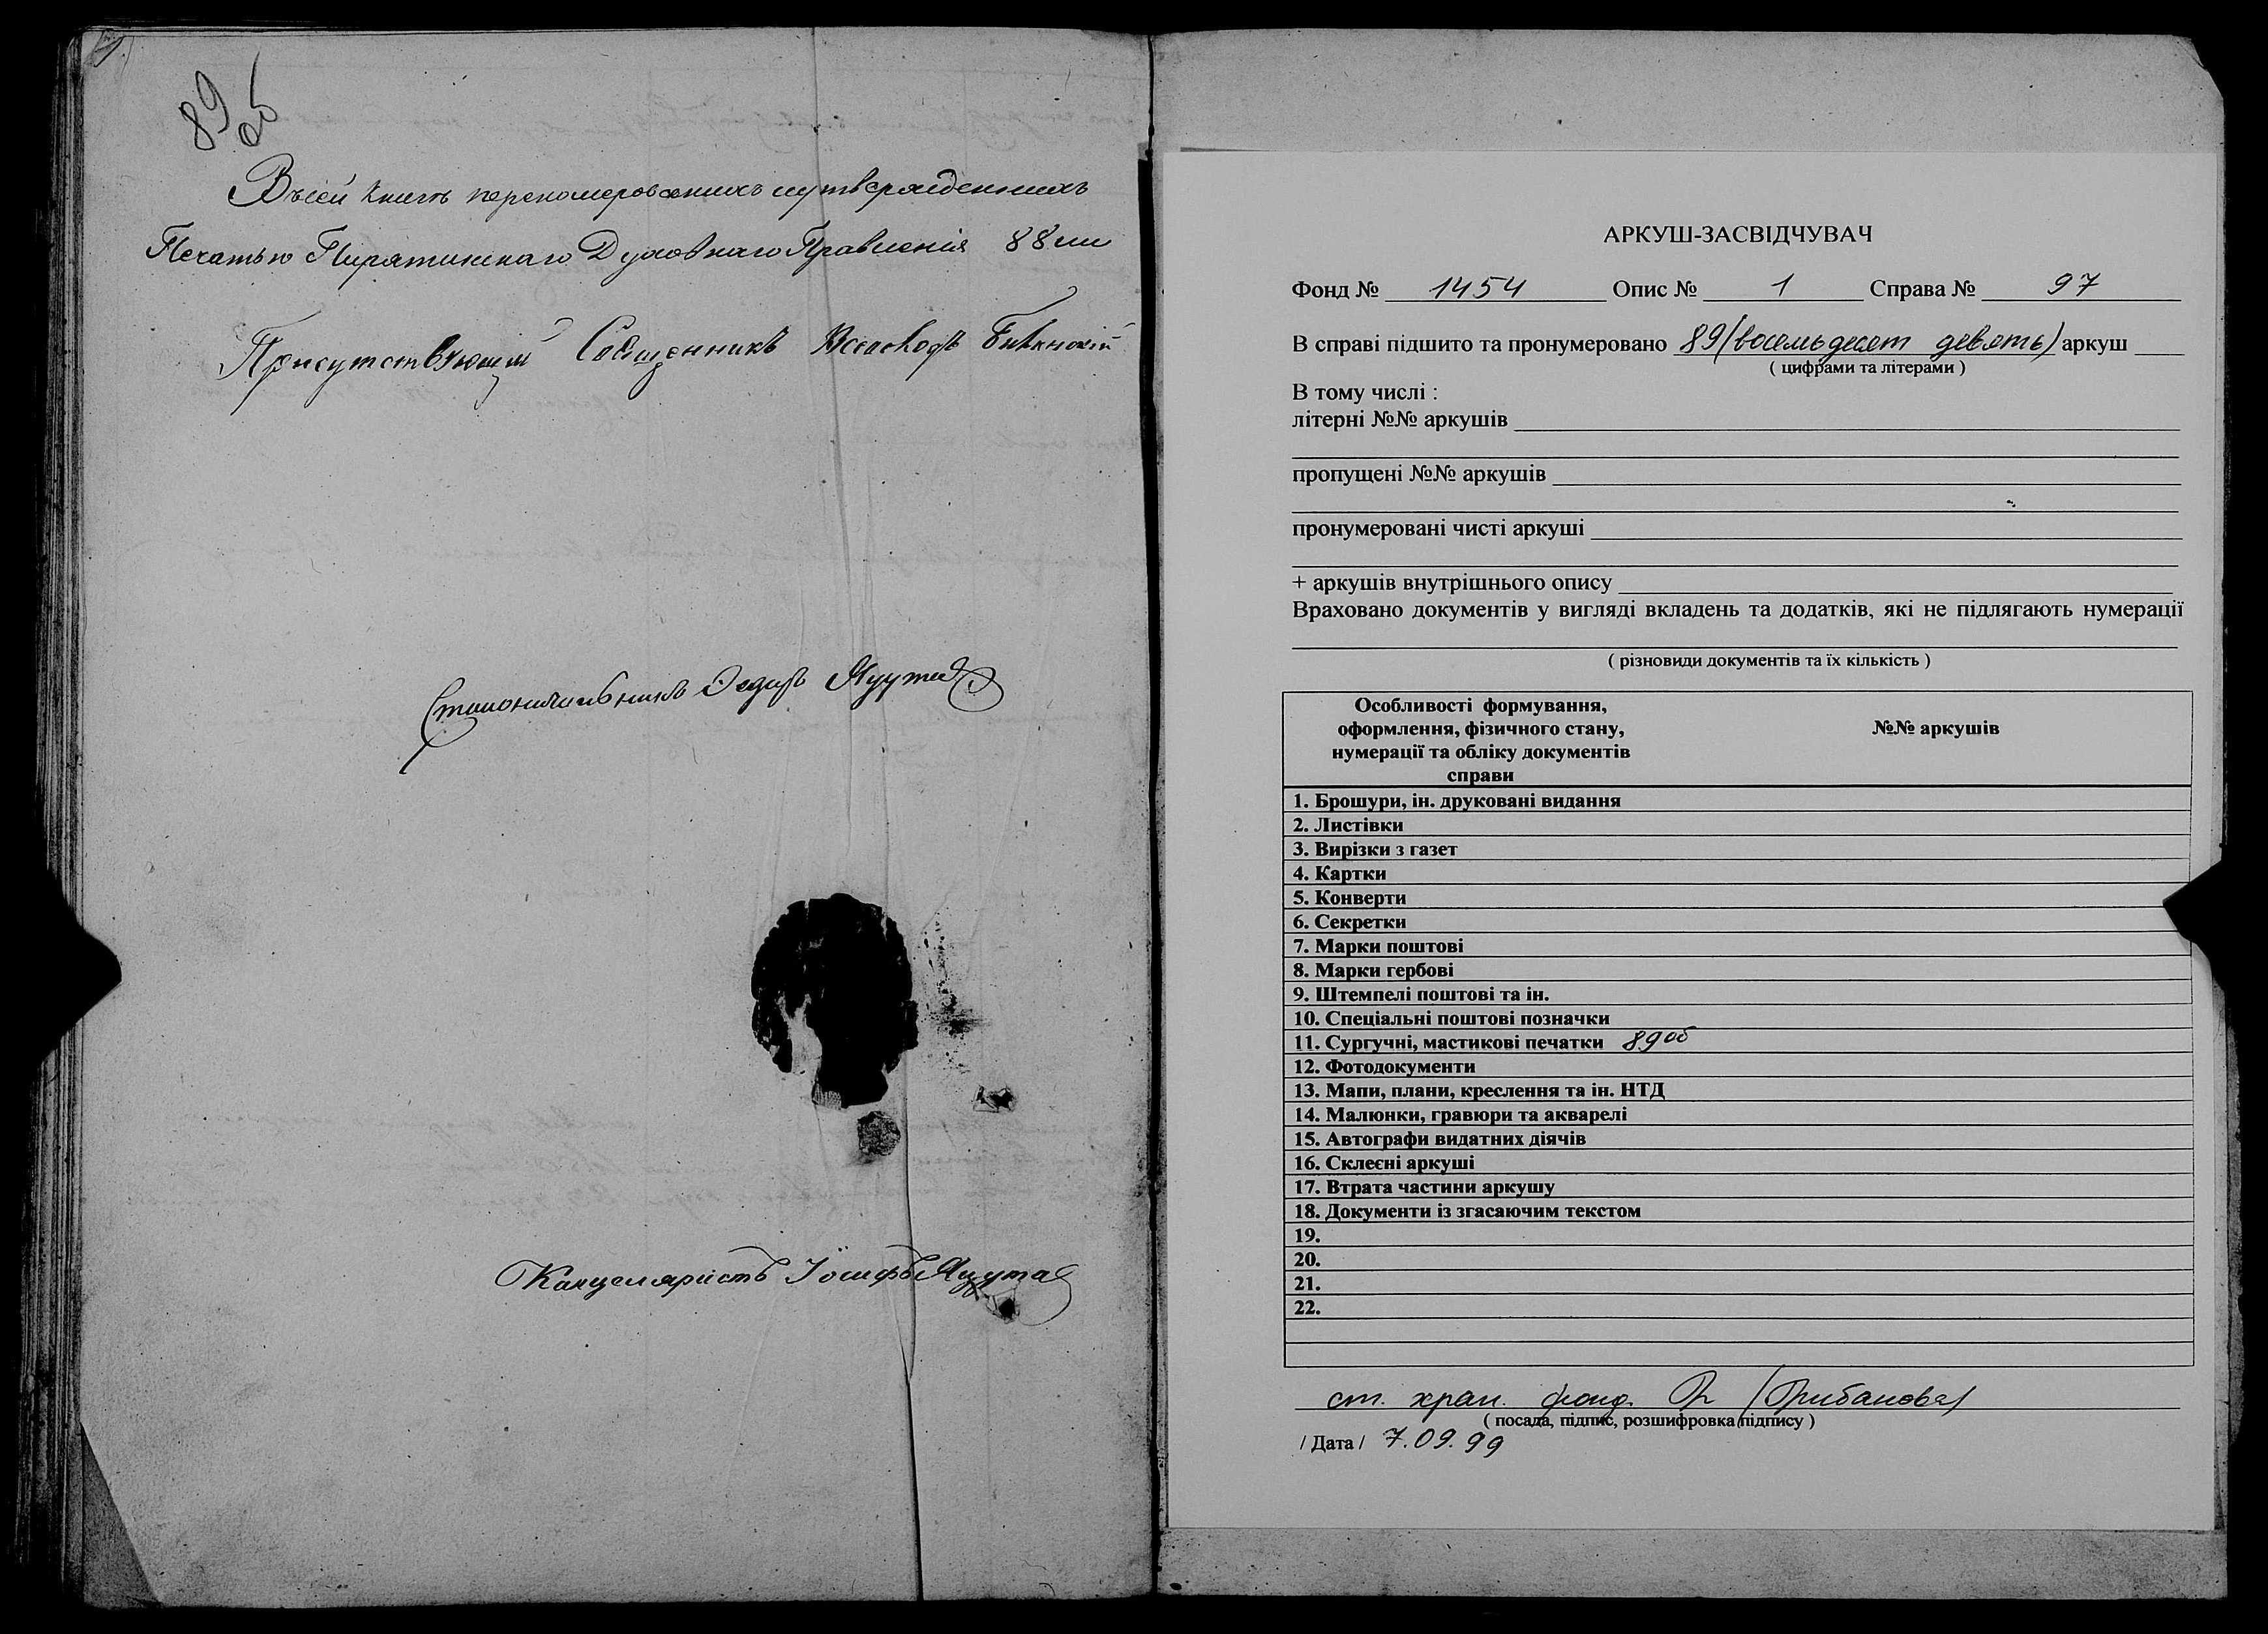 89
об
Въсей книгѣ перенумерованихъ иутвержденнихъ
Печатью Пирятинскаго Духовнаго Правленія 88 ли
Присутствующій Священникъ
Столоначальникъ Федоръ Яцута
Канцеляристъ Іосифъ Яцута
АРКУШ-ЗАСВІДЧУВАЧ
Фонд № 1454 Опис № 1 Справа № 97
В справі підшито та пронумеровано 89 (восемьдесят девять) аркуш
( цифрами та літерами )
В тому числі :
літерні №№ аркушів
пропущені №№ аркушів
пронумеровані чисті аркуші
+ аркушів внутрішнього опису
Враховано документів у вигляді вкладень та додатків, які не підлягають нумерації
( різновиди документів та їх кількість )
Особливості формування,
оформлення, фізичного стану,
нумерації та обліку документів
справи
№№ аркушів
1. Брошури, ін. друковані видання
2. Листівки
3. Вирізки з газет
4. Картки
5. Конверти
6. Секретки
7. Марки поштові
8. Марки гербові
9. Штемпелі поштові та ін.
10. Спеціальні поштові позначки
11. Сургучні, мастикові печатки 89об
12. Фотодокументи
13. Мапи, плани, креслення та ін. НТД
14. Малюнки, гравюри та акварелі
15. Автографи видатних діячів
16. Склеєні аркуші
17. Втрата частини аркушу
18. Документи із згасаючим текстом
19.
20.
21.
22.
ст. хран. фонд. (Грибанова)
( посада, підпис, розшифровка підпису )
/ Дата / 7.09.99